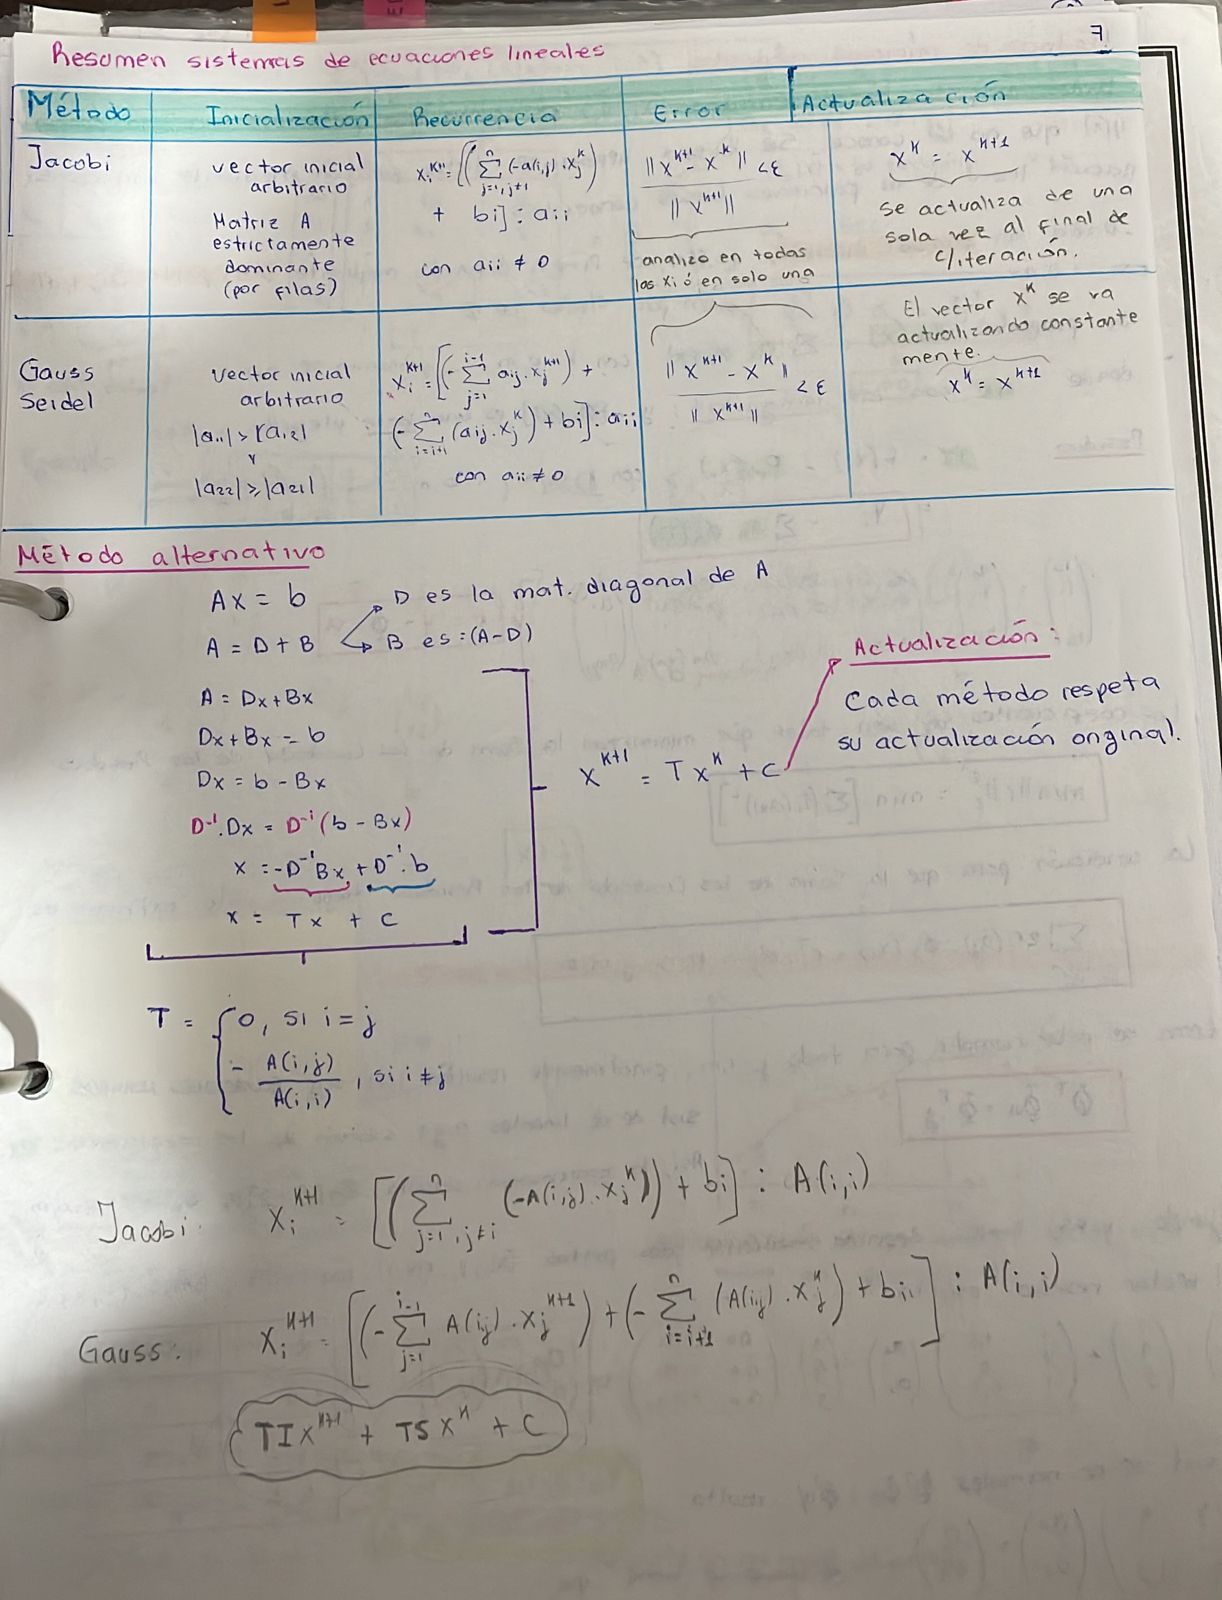 7
Resumen sistemas de ecuaciones lineales
Método | Inicialización | Recurrencia | Error | Actualización
Jacobi
vector inicial
arbitrario
Matriz A
estrictamente
dominante
(por filas)
Xi^K+1 = [(∑ j=1, j≠1 ^n (-a(i,j) . Xj^K)
+ bi] : aii
con aii ≠ 0
|| X^K+1 - X^K || < ε
|| X^K+1 ||
analizo en todas
las Xi ó en solo una
X^K = X^K+1
se actualiza de una
sola vez al final de
c/iteración.
Gauss
Seidel
vector inicial
arbitrario
|a11| > |a12|
y
|a22| > |a21|
Xi^K+1 = [(- ∑ j=1 ^i-1 aij . Xj^K+1) +
(- ∑ i=i+1 ^n (aij . Xj^K) + bi] : aii
con aii ≠ 0
|| X^K+1 - X^K || < ε
|| X^K+1 ||
El vector X^K se va
actualizando constante
mente.
X^K = X^K+1
Método alternativo
AX = b
A = D + B
D es la mat. diagonal de A
B es : (A-D)
A = Dx + Bx
Dx + Bx = b
Dx = b - Bx
D^-1 . Dx = D^-1 (b - Bx)
x = -D^-1 Bx + D^-1 . b
x = Tx + C
X^K+1 = TX^K + C
Actualización:
Cada método respeta
su actualización original.
T = { 0, si i = j
- A(i,j) / A(i,i) , si i ≠ j
Jacobi: Xi^K+1 = [(∑ j=1, j≠i ^n (-A(i,j) . Xj^K)) + bi] : A(i,i)
Gauss: Xi^K+1 = [(- ∑ j=1 ^i-1 A(i,j) . Xj^K+1) + (- ∑ i=i+1 ^n (A(i,j) . Xj^K) + bi] : A(i,i)
TIX^K+1 + TSX^K + C